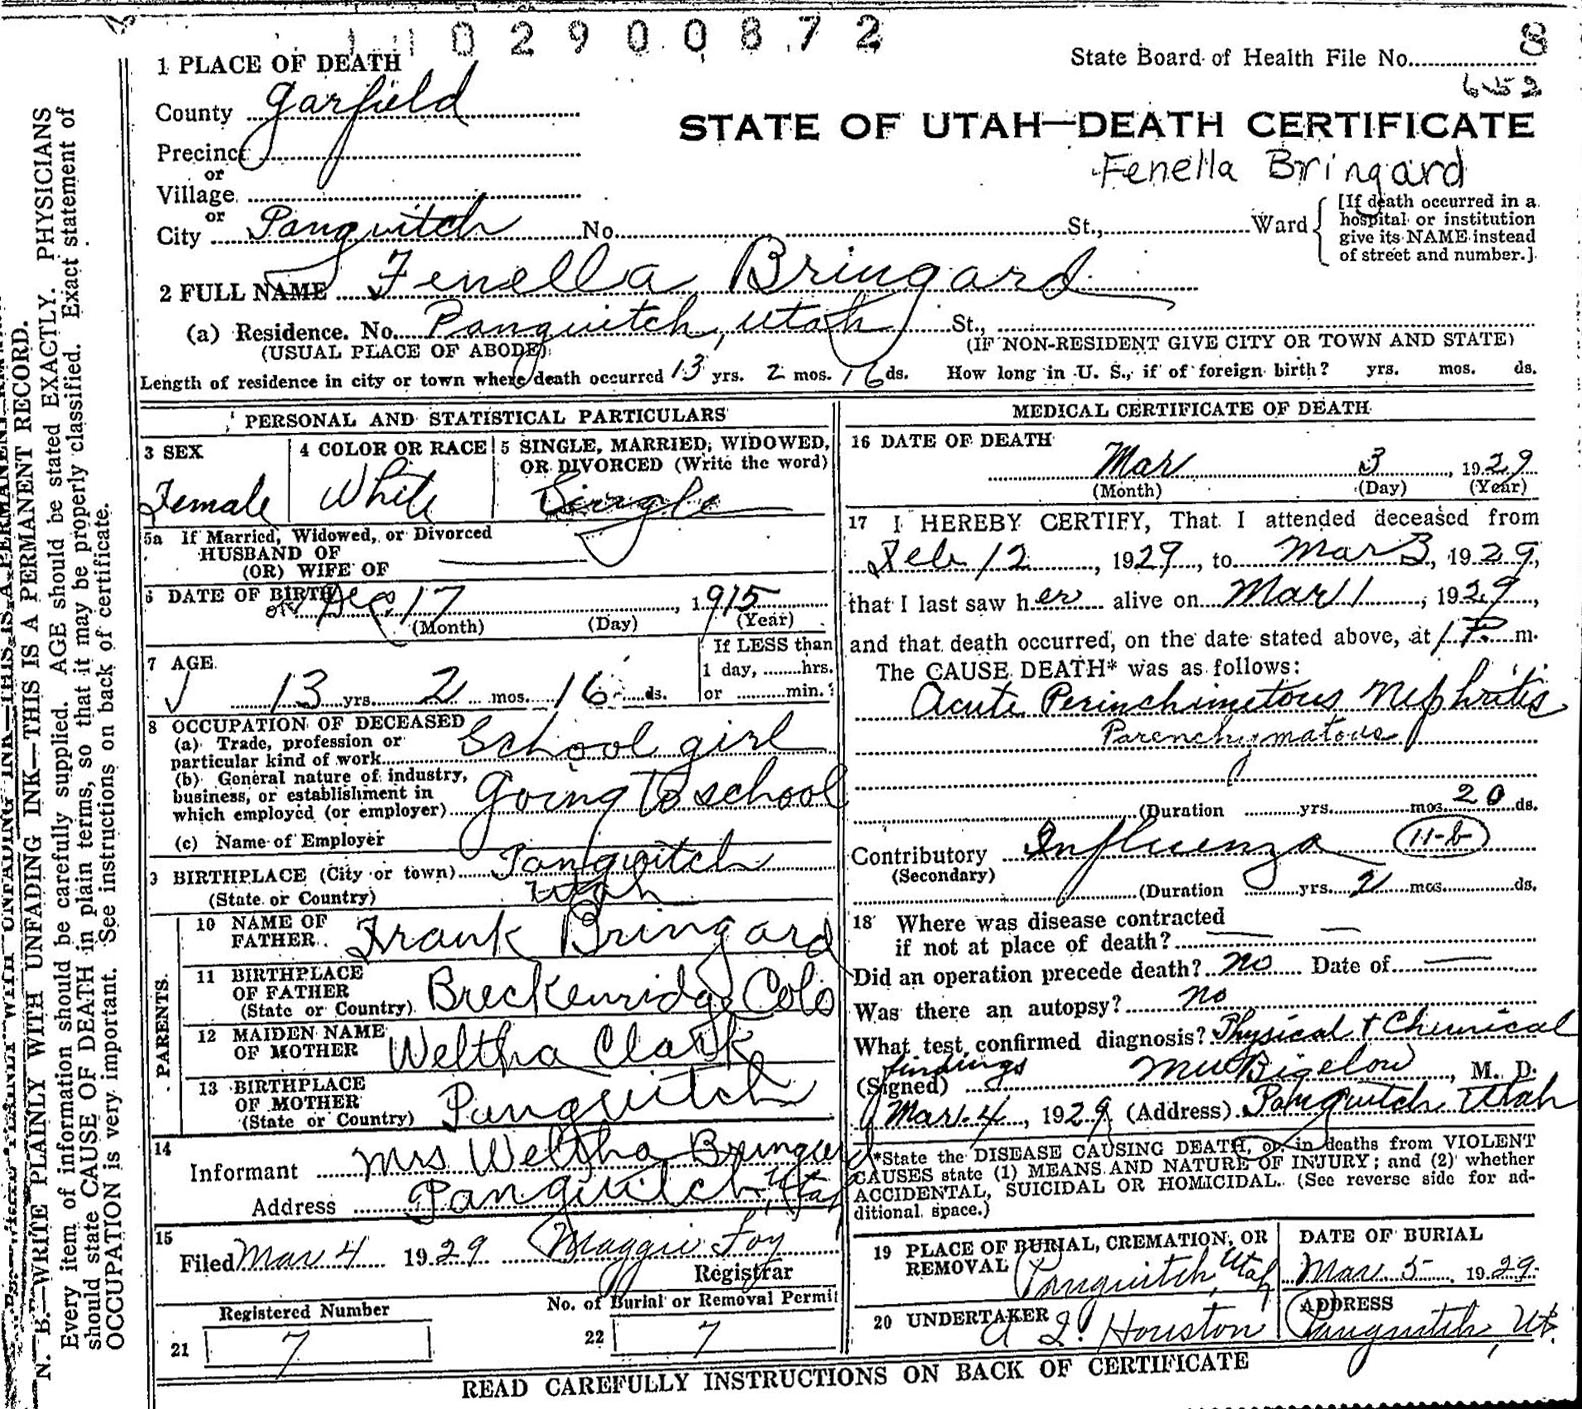 02900872
1 PLACE OF DEATH
State Board of Health File No. 8
652
County Garfield
STATE OF UTAH—DEATH CERTIFICATE
Precinct
or
Fenella Bringard
Village
or
City Panguitch No. St., Ward
[If death occurred in a hospital or institution give its NAME instead of street and number.]
2 FULL NAME Fenella Bringard
(a) Residence. No. Panguitch, Utah St.,
(USUAL PLACE OF ABODE) (IF NON-RESIDENT GIVE CITY OR TOWN AND STATE)
Length of residence in city or town where death occurred 13 yrs. 2 mos. 16 ds. How long in U. S., if of foreign birth? yrs. mos. ds.
PERSONAL AND STATISTICAL PARTICULARS
3 SEX
Female
4 COLOR OR RACE
White
5 SINGLE, MARRIED, WIDOWED,
OR DIVORCED (Write the word)
Single
5a If Married, Widowed, or Divorced
HUSBAND OF
(OR) WIFE OF
6 DATE OF BIRTH Dec 17, 1915
(Month) (Day) (Year)
7 AGE
13 yrs. 2 mos. 16 ds.
If LESS than
1 day, hrs.
or min.?
8 OCCUPATION OF DECEASED
(a) Trade, profession or
particular kind of work School girl
(b) General nature of industry,
business, or establishment in
which employed (or employer) going to school
(c) Name of Employer
9 BIRTHPLACE (City or town) Panguitch
(State or Country) Utah
PARENTS.
10 NAME OF
FATHER Frank Bringard
11 BIRTHPLACE
OF FATHER
(State or Country) Breckenridge Colo
12 MAIDEN NAME
OF MOTHER Weltha Clark
13 BIRTHPLACE
OF MOTHER
(State or Country) Panguitch
14
Informant Mrs Weltha Bringard
Address Panguitch, Utah
15
Filed Mar 4 1929 Maggie Foy
Registrar
Registered Number
21 7
No. of Burial or Removal Permit
22 7
MEDICAL CERTIFICATE OF DEATH
16 DATE OF DEATH
Mar 3, 1929
(Month) (Day) (Year)
17 I HEREBY CERTIFY, That I attended deceased from
Feb 12, 1929, to Mar 3, 1929,
that I last saw her alive on Mar 1, 1929,
and that death occurred, on the date stated above, at 1 P. m.
The CAUSE DEATH* was as follows:
Acute Perinchimetous Nephritis
Parenchymatous
(Duration yrs. mos. 20 ds.
Contributory Influenza 11-b
(Secondary)
(Duration yrs. 2 mos. ds.
18 Where was disease contracted
if not at place of death?
Did an operation precede death? no Date of
Was there an autopsy? no
What test confirmed diagnosis? Physical + Chemical
findings
(Signed) Bigelow, M. D.
Mar. 4, 1929 (Address) Panguitch Utah
*State the DISEASE CAUSING DEATH, or in deaths from VIOLENT
CAUSES state (1) MEANS AND NATURE OF INJURY; and (2) whether
ACCIDENTAL, SUICIDAL OR HOMICIDAL. (See reverse side for ad-
ditional space.)
19 PLACE OF BURIAL, CREMATION, OR
REMOVAL Panguitch, Utah
DATE OF BURIAL
Mar 5 1929
20 UNDERTAKER Houston
ADDRESS
Panguitch, Ut.
READ CAREFULLY INSTRUCTIONS ON BACK OF CERTIFICATE
N. B.—WRITE PLAINLY WITH UNFADING INK—THIS IS A PERMANENT RECORD.
Every item of information should be carefully supplied. AGE should be stated EXACTLY. PHYSICIANS
should state CAUSE OF DEATH in plain terms, so that it may be properly classified. Exact statement of
OCCUPATION is very important. See instructions on back of certificate.